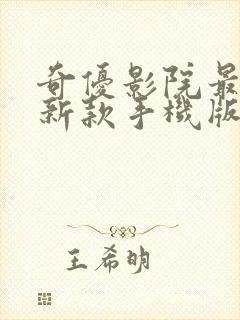 奇優影院最
新款手機版
王希明